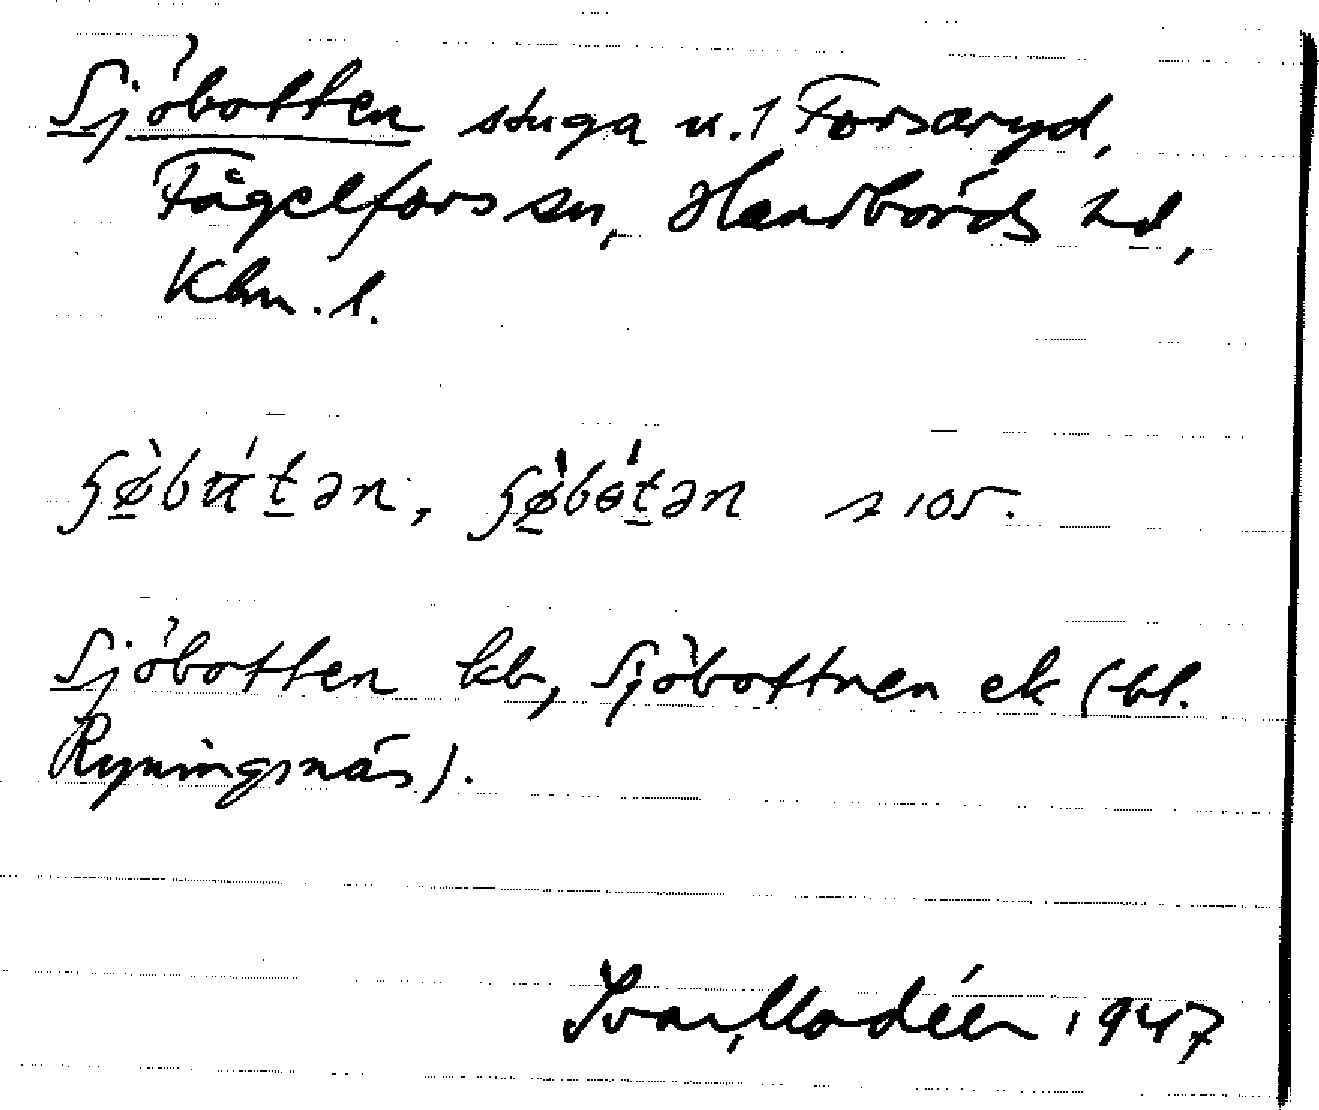 Sjöbotten stuga u. 1 Forsaryd,
Fågelfors sn, Handbörds hd,
Klm. l.
s 105.
Sjöbotten kb, Sjöbottnen ek (bl.
Ryningsnäs).
Ivar Modéer 1947